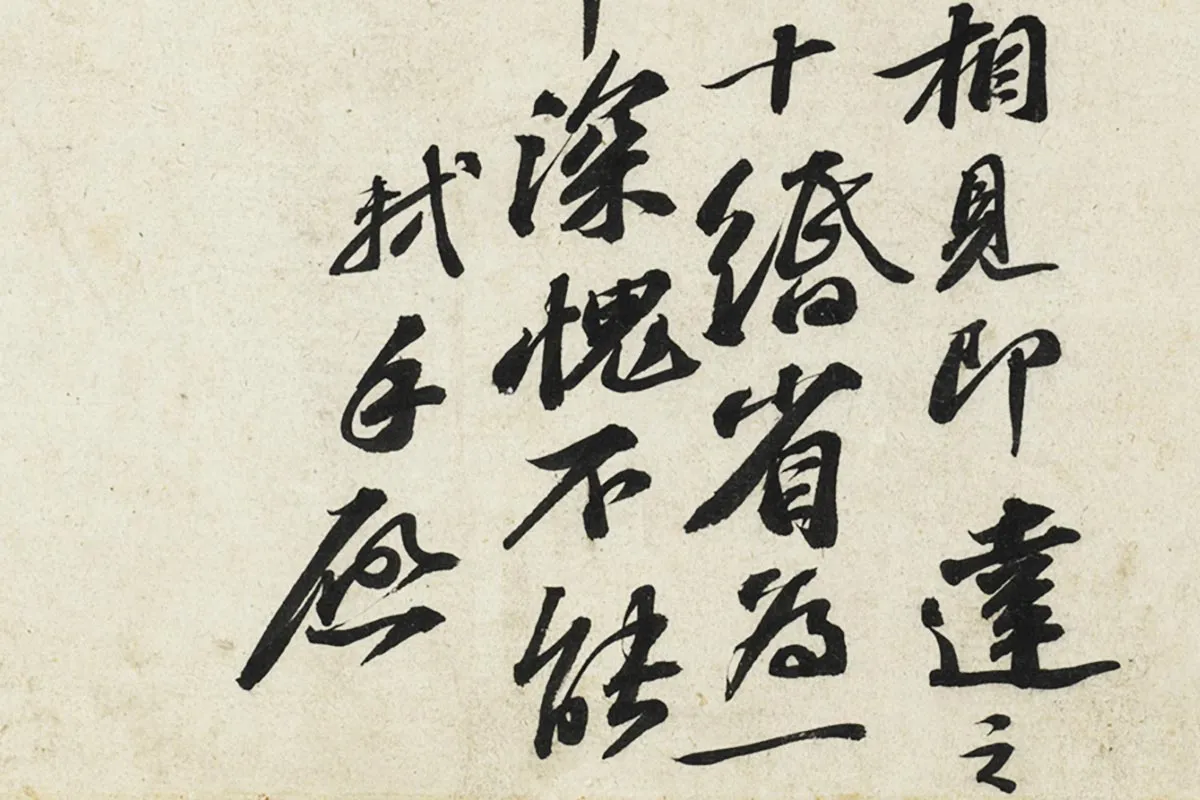 相見即達之
十緡省為一
深愧不能
軾手啟